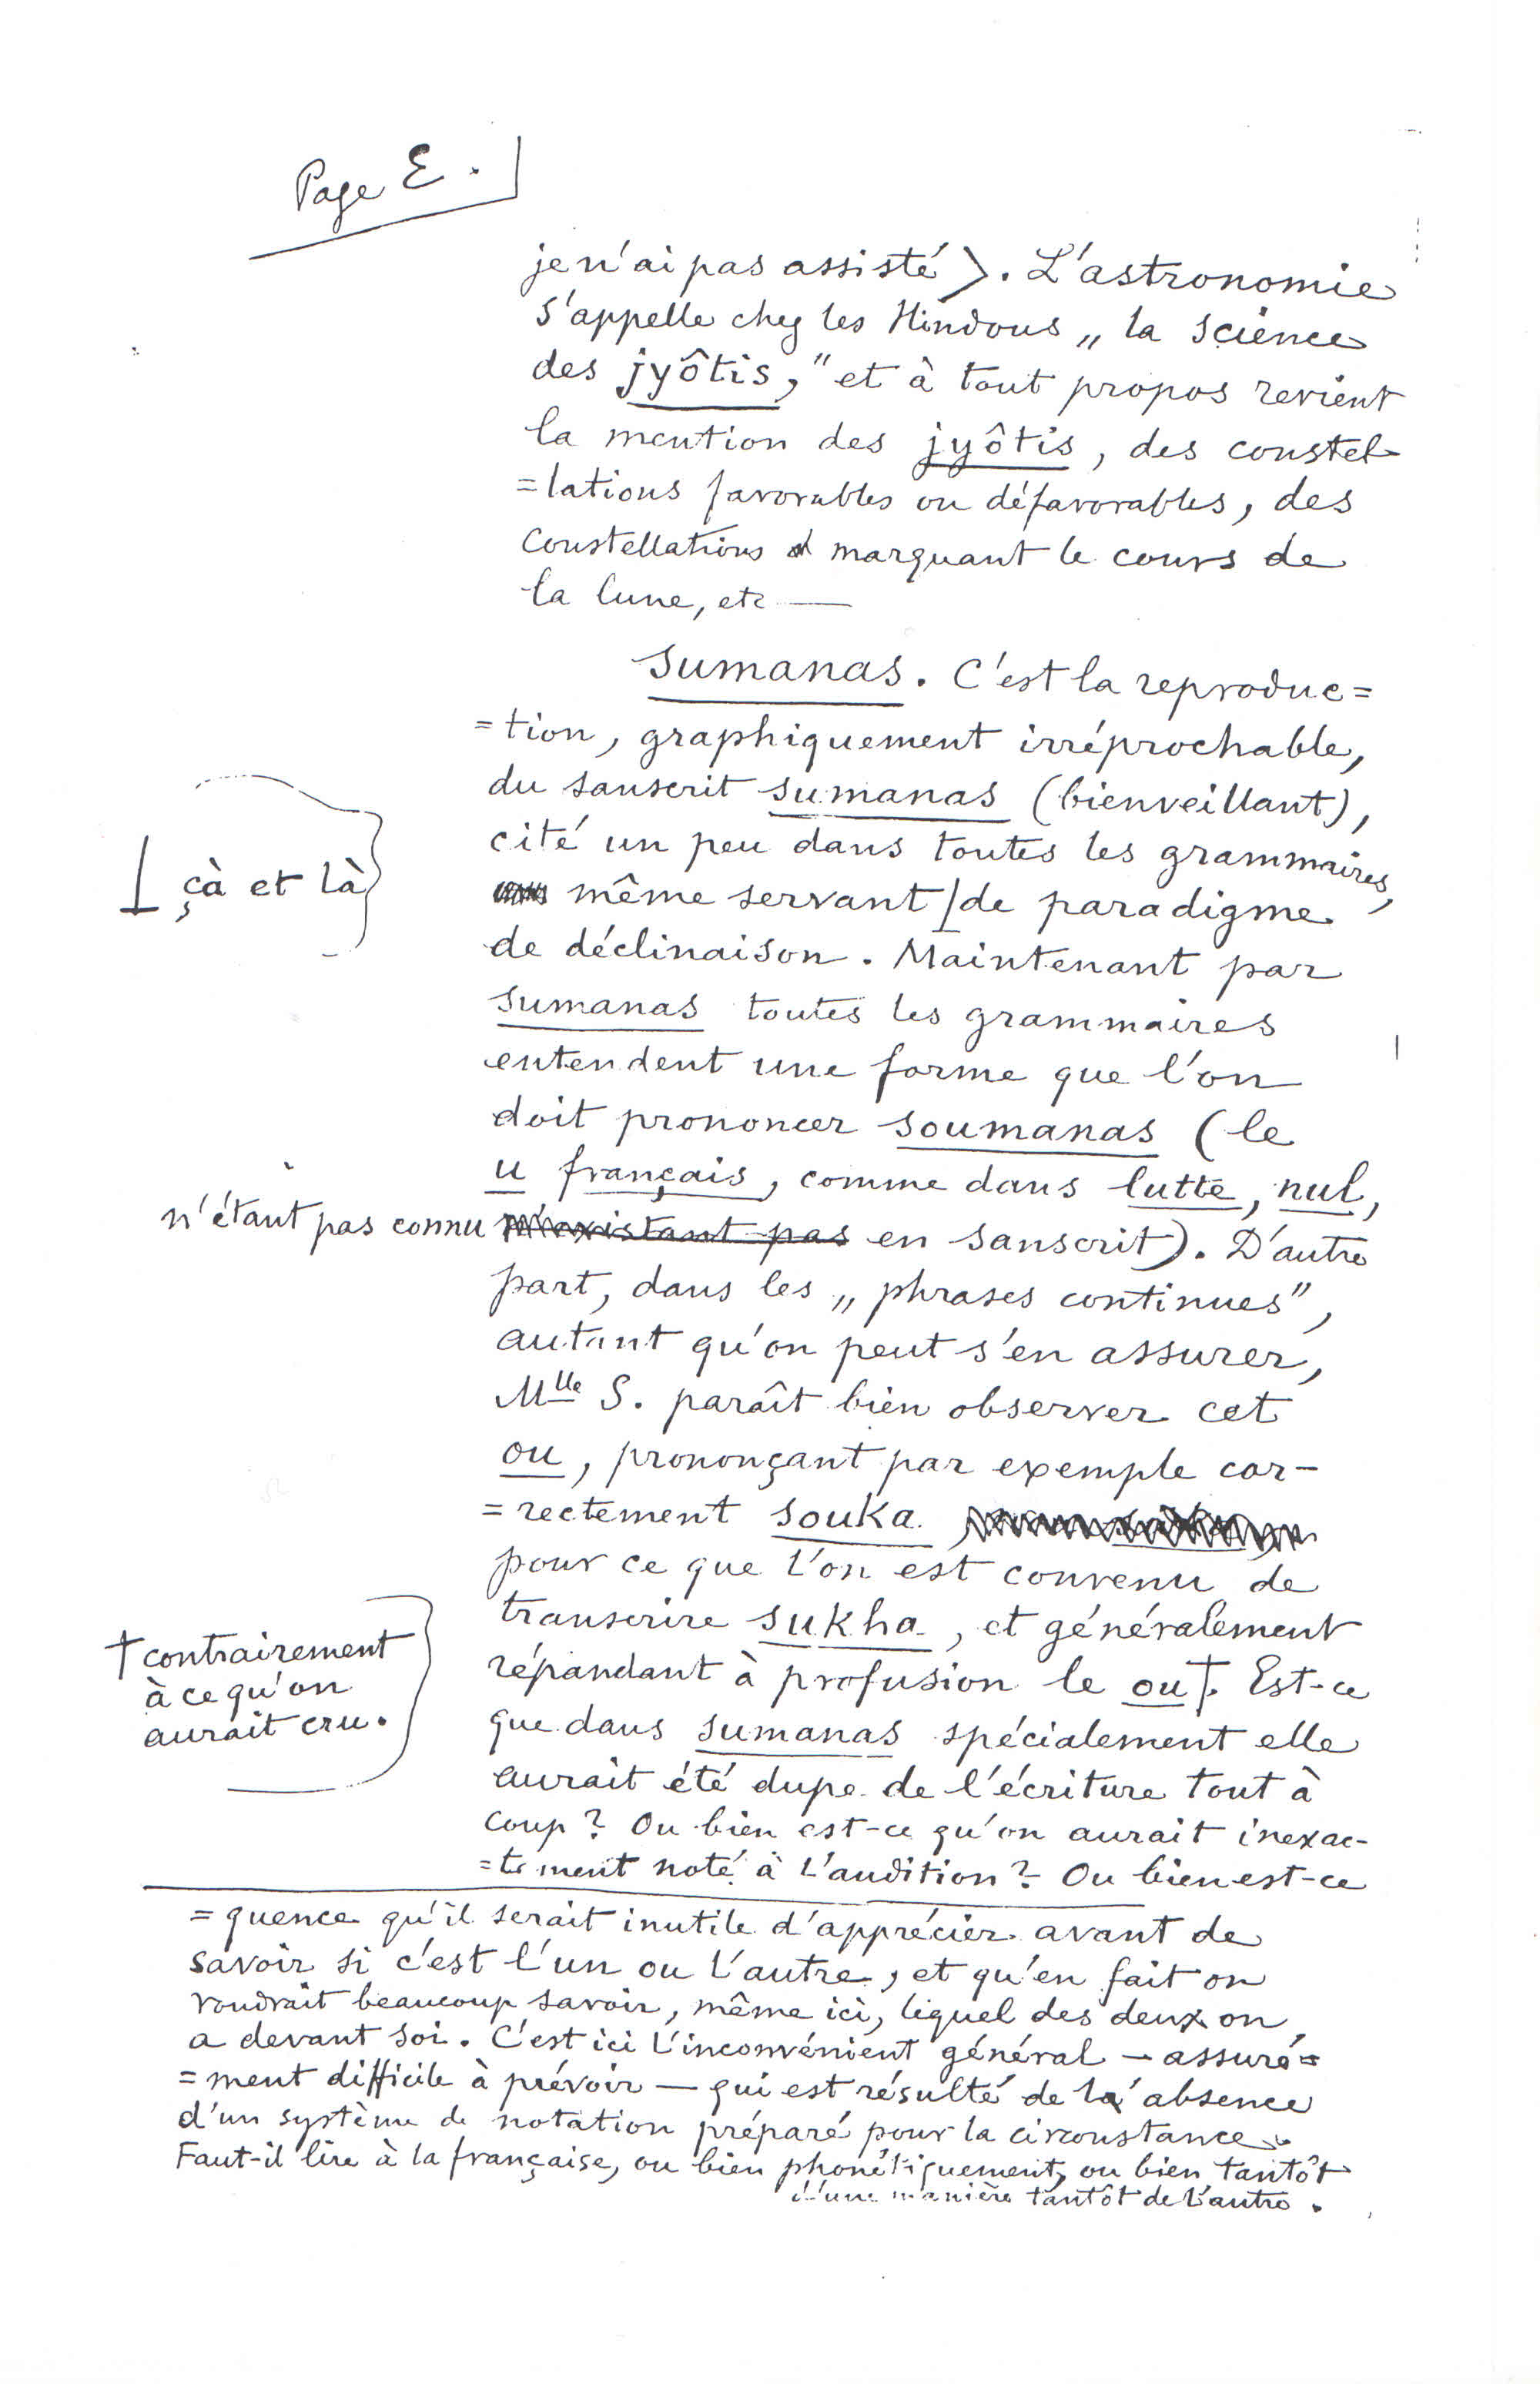 Page E.
je n'ai pas assisté ⟩. L'astronomie
s'appelle chez les Hindous „ la science
des jyôtis,” et à tout propos revient
la mention des jyôtis, des constel-
=lations favorables ou défavorables, des
constellations marquant le cours de
la lune, etc —
Sumanas. C'est la reproduc=
=tion, graphiquement irréprochable,
du sanscrit sumanas (bienveillant),
cité un peu dans toutes les grammaires,
même servant de paradigme
çà et là
de déclinaison. Maintenant par
sumanas toutes les grammaires
entendent une forme que l'on
doit prononcer soumanas (le
u français, comme dans lutte, nul,
n'étant pas connu n'existant pas en sanscrit). D'autre
part, dans les „ phrases continues”,
autant qu'on peut s'en assurer,
Mlle S. paraît bien observer cet
ou, prononçant par exemple cor-
=rectement souka
pour ce que l'on est convenu de
transcrire sukha, et généralement
répandant à profusion le ou†. Est-ce
† contrairement
à ce qu'on
aurait cru.
que dans sumanas spécialement elle
aurait été dupe de l'écriture tout à
coup ? Ou bien est-ce qu'on aurait inexac-
=tement noté à l'audition ? Ou bien est-ce
=quence qu'il serait inutile d'apprécier avant de
savoir si c'est l'un ou l'autre, et qu'en fait on
voudrait beaucoup savoir, même ici, lequel des deux on
a devant soi. C'est ici l'inconvénient général — assuré=
=ment difficile à prévoir — qui est résulté de l'absence
d'un système de notation préparé pour la circonstance.
Faut-il lire à la française, ou bien phonétiquement, ou bien tantôt
d'une manière tantôt de l'autre.